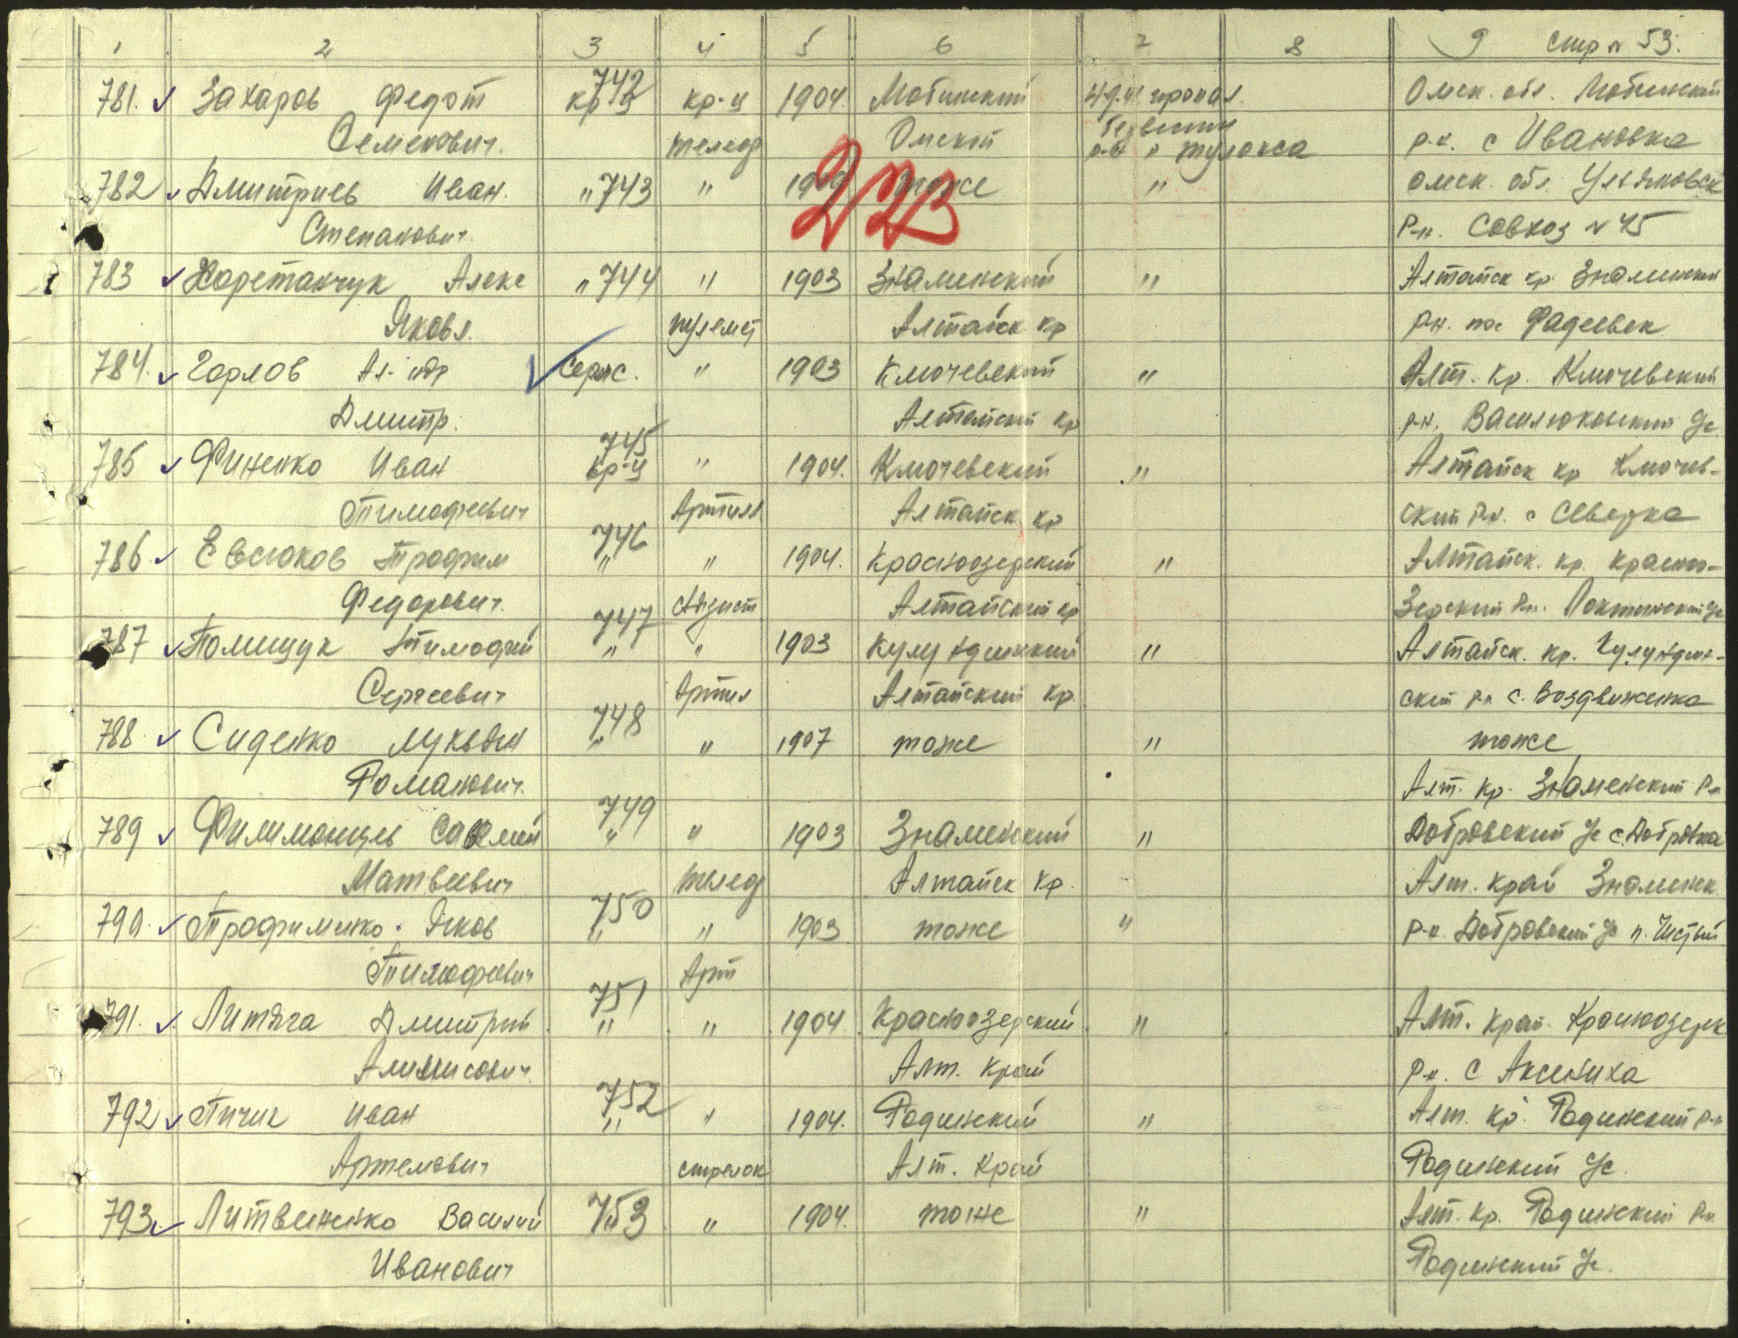 1 2 3 4 5 6 7 8 9 стр п 53.
742
781. Захаров Федот кр-ц кр-ц 1904. Любинский 4.9.41 пропал Омск. обл. Любинский
Семенович. телеф Омской безвести р-н. с Ивановка
р-н Тулокса
782 Дмитриев Иван. " 743 " 1909 тоже " омск. обл. Ульяновск
223
Степанович. р-н. Совхоз № 45
783 Харстанчук Алекс " 744 " 1903 Знаменский " Алтайск кр Знаменский
Яковл. пулемет Алтайск кр рн. пос Фадеевск
784. Горлов Ал-ндр Серж. " 1903 Ключевский " Алт. кр. Ключевский
Дмитр. Алтайский кр р-н. Васильковский
745
785 Финенко Иван кр-ц " 1904. Ключевский " Алтайск кр Ключев-
Тимофеевич Артилл Алтайск кр ский рн. с Северка
746
786 Евсюков Трофим " " 1904. Краснозерский " Алтайск. кр. красно-
Федорович. Алтайский кр зерский рн. Локтинский
747
787 Полищук Тимофей " " 1903 Кулундинский " Алтайск. кр. Кулундин-
Сергеевич Артил Алтайский кр ский рн с. Воздвиженка
748
788 Сиденко Лукьян " " 1907 тоже " тоже
Романович. Алт. кр. Знаменский рн
749
789 Филимонцев Савелий " " 1903 Знаменский " Добровский с/с с. Добровка
Матвеевич телеф Алтайск кр. Алт. край Знаменск
750
790. Трофименко Яков " " 1903 тоже " р-н. Добровский с/с п. Чистый
Тимофеевич Арт
751
791. Литяга Дмитрий " " 1904 Краснозерский " Алт. край. Краснозерск
Алт. край р-н. с Аксениха
752
792 Пичик Иван " " 1904. Родинский " Алт. кр. Родинский р-н
Артемович стрелок Алт. край Родинский с/с.
793 Литвиненко Василий 753 " 1904. тоже " Алт. кр. Родинский рн.
Иванович Родинский с/с.